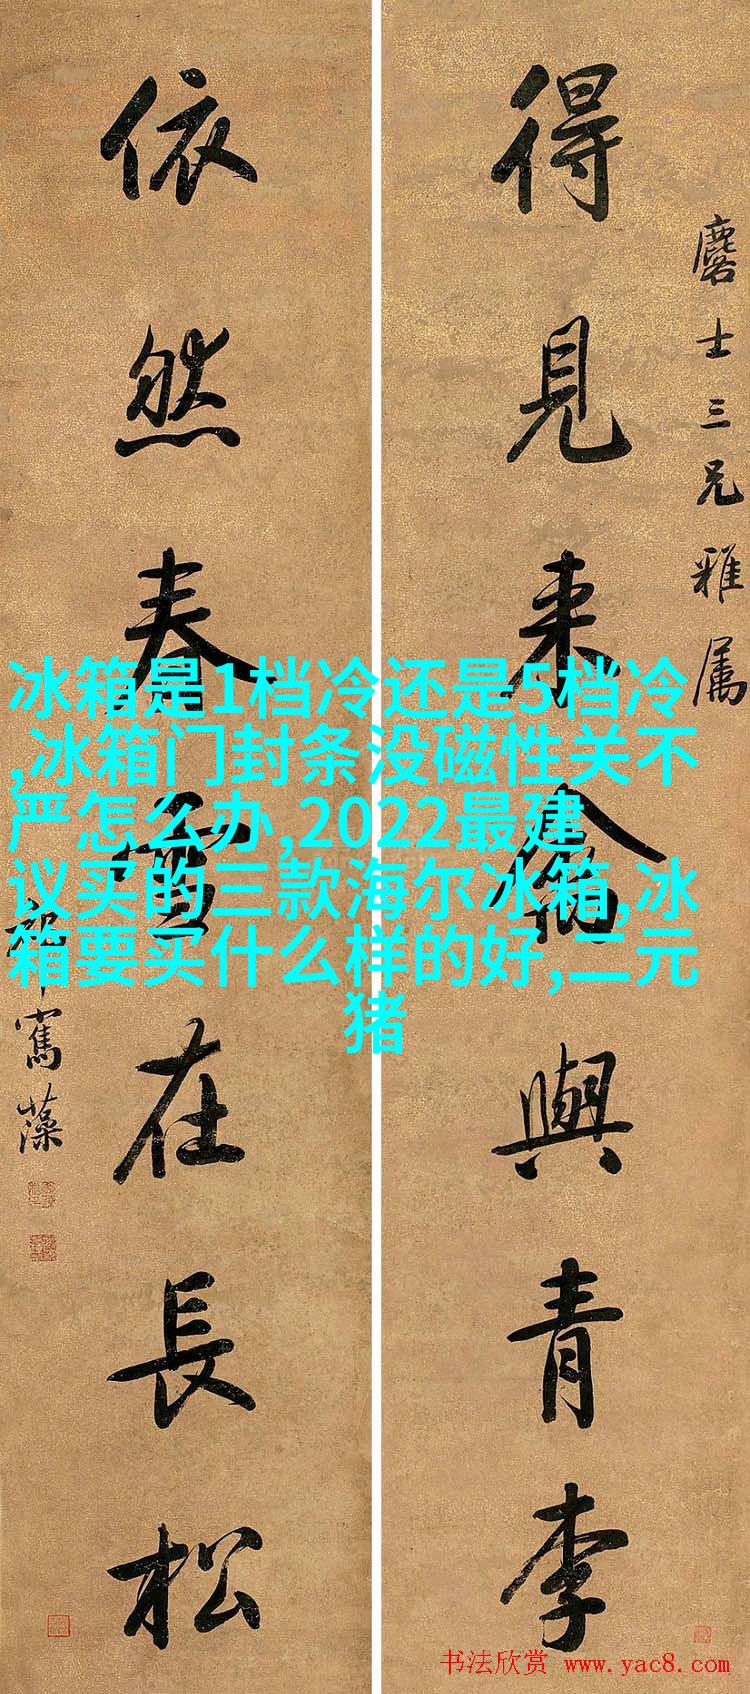 麐士三兄雅属
得見来禽與青李
依然春雪在長松
寯藻
冰箱是1档冷还是5档冷
,冰箱门封条没磁性关不
严怎么办,2022最建
议买的三款海尔冰箱,冰
箱要买什么样的好,二元
猪
书法欣赏 www.yac8.com